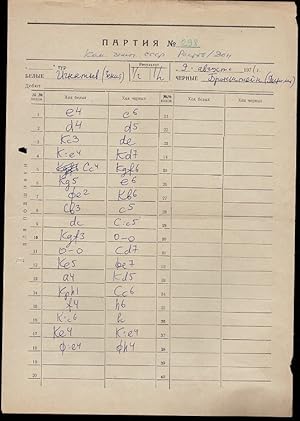 ПАРТИЯ № 298
Ком. чемп. СССР Ростов/Дон
тур
Результат
2 августа 1971 г.
БЕЛЫЕ Игнатьев 1/2 1/2 ЧЕРНЫЕ Бронштейн
Дебют
№№ ходов Ход белых Ход черных №№ ходов Ход белых Ход черных
1 e4 c6 21
2 d4 d5 22
3 Kc3 de 23
4 K:e4 Kd7 24
5 Cc4 Kgf6 25
6 Kg5 e6 26
7 Фe2 Kb6 27
8 Cb3 c5 28
9 dc C:c5 29
10 Kgf3 0-0 30
11 0-0 Cd7 31
12 Ke5 Фe7 32
13 a4 Kd5 33
14 Kph1 Cc6 34
15 f4 h6 35
16 K:c6 bc 36
17 Ke4 K:e4 37
18 Ф:e4 Фh4 38
19 39
20 40
ДЛЯ ПОМЕТОК